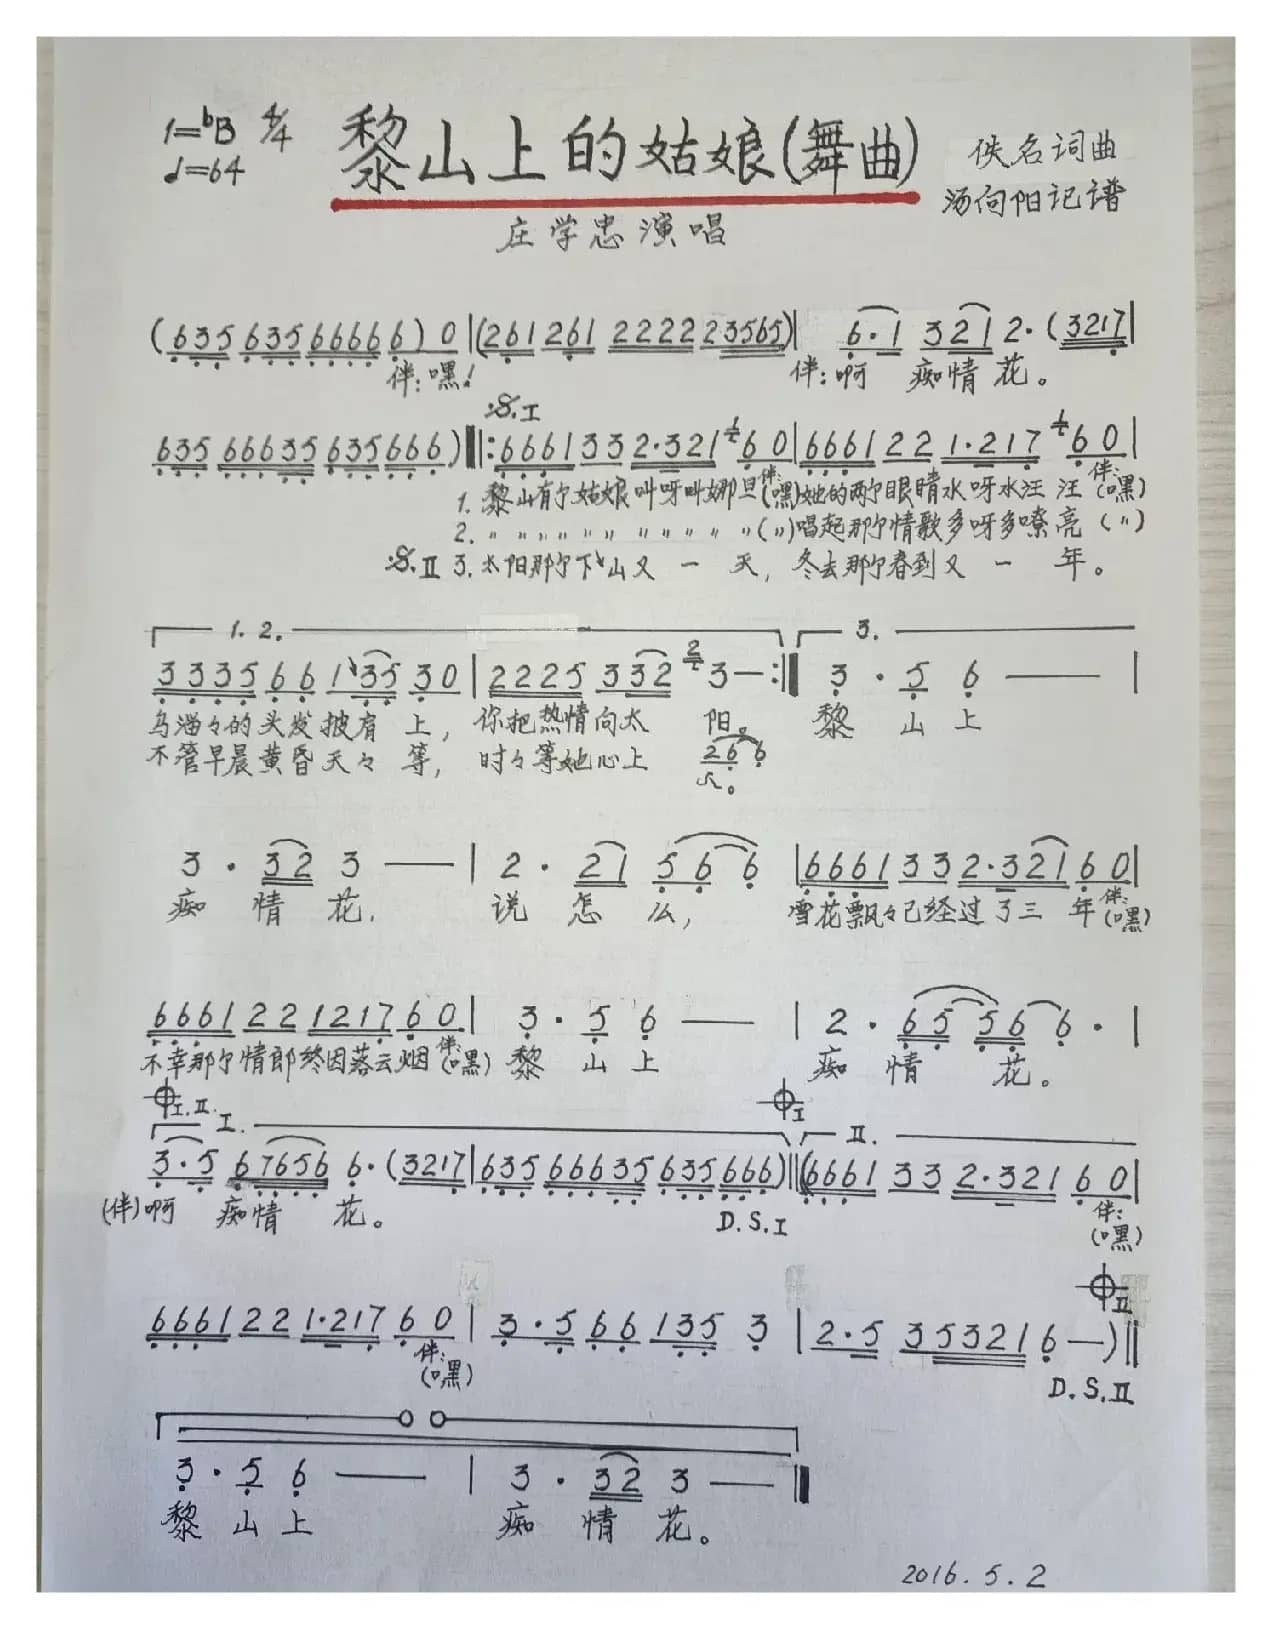 1=♭B 4/4 黎山上的姑娘(舞曲) 佚名词曲
♩=64 汤向阳记谱
庄学忠演唱
(635 635 6666 6) 0 | (261 261 2222 23565) | 6·1 321 2·(3217 |
伴:嘿! 伴:啊 痴情花。
𝄋.I
635 66635 635 666) ‖: 6661 33 2·321 6 0 | 6661 22 1·217 6 0 |
1. 黎山有个姑娘叫呀叫娜旦 伴:(嘿) 她的两个眼睛水呀水汪汪 伴:(嘿)
2. 〃 〃 〃 〃 〃 〃 〃 〃 〃 〃 (〃) 唱起那个情歌多呀多嘹亮 (〃)
𝄋.II 3. 太阳那个下山又一天, 冬去那个春到又一年。
1. 2. 3.
3335 66 135 30 | 2225 332 2 3— :‖ 3·5 6 —— |
乌溜々的头发披肩上, 你把热情向太阳。 黎山上
266
不管早晨黄昏天々等, 时々等她心上人。
3·32 3 —— | 2·21 566 | 6661 33 2·321 6 0 |
痴情花, 说怎么, 雪花飘々已经过了三年 伴:(嘿)
6661 22 1217 6 0 | 3·5 6 —— | 2·65 56 6· |
不幸那个情郎终因落云烟 伴:(嘿) 黎山上 痴情花。
𝄌I.II. 𝄌I
I. II.
3·5 67656 6·(3217 | 635 66635 635 666) ‖ (6661 33 2·321 6 0 |
(伴)啊 痴情花。 D.S.I 伴:(嘿)
𝄌II
6661 22 1·217 6 0 | 3·5 66 135 3 | 2·5 353321 6 —) ‖
伴:(嘿) D.S.II
3·5 6 —— | 3·32 3 —— ‖
黎山上 痴情花。
2016.5.2